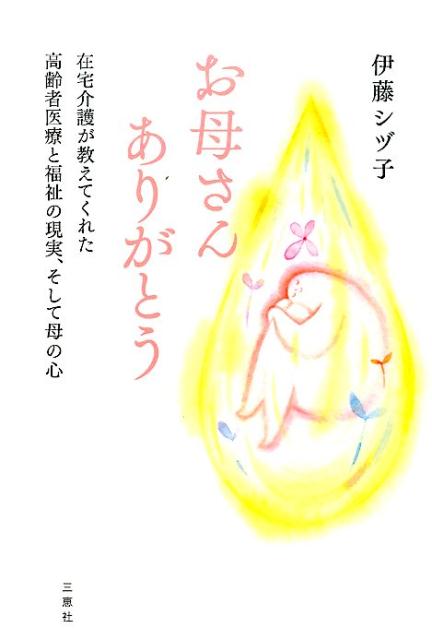 伊藤シヅ子
お母さん
ありがとう
在宅介護が教えてくれた
高齢者医療と福祉の現実、そして母の心
三恵社